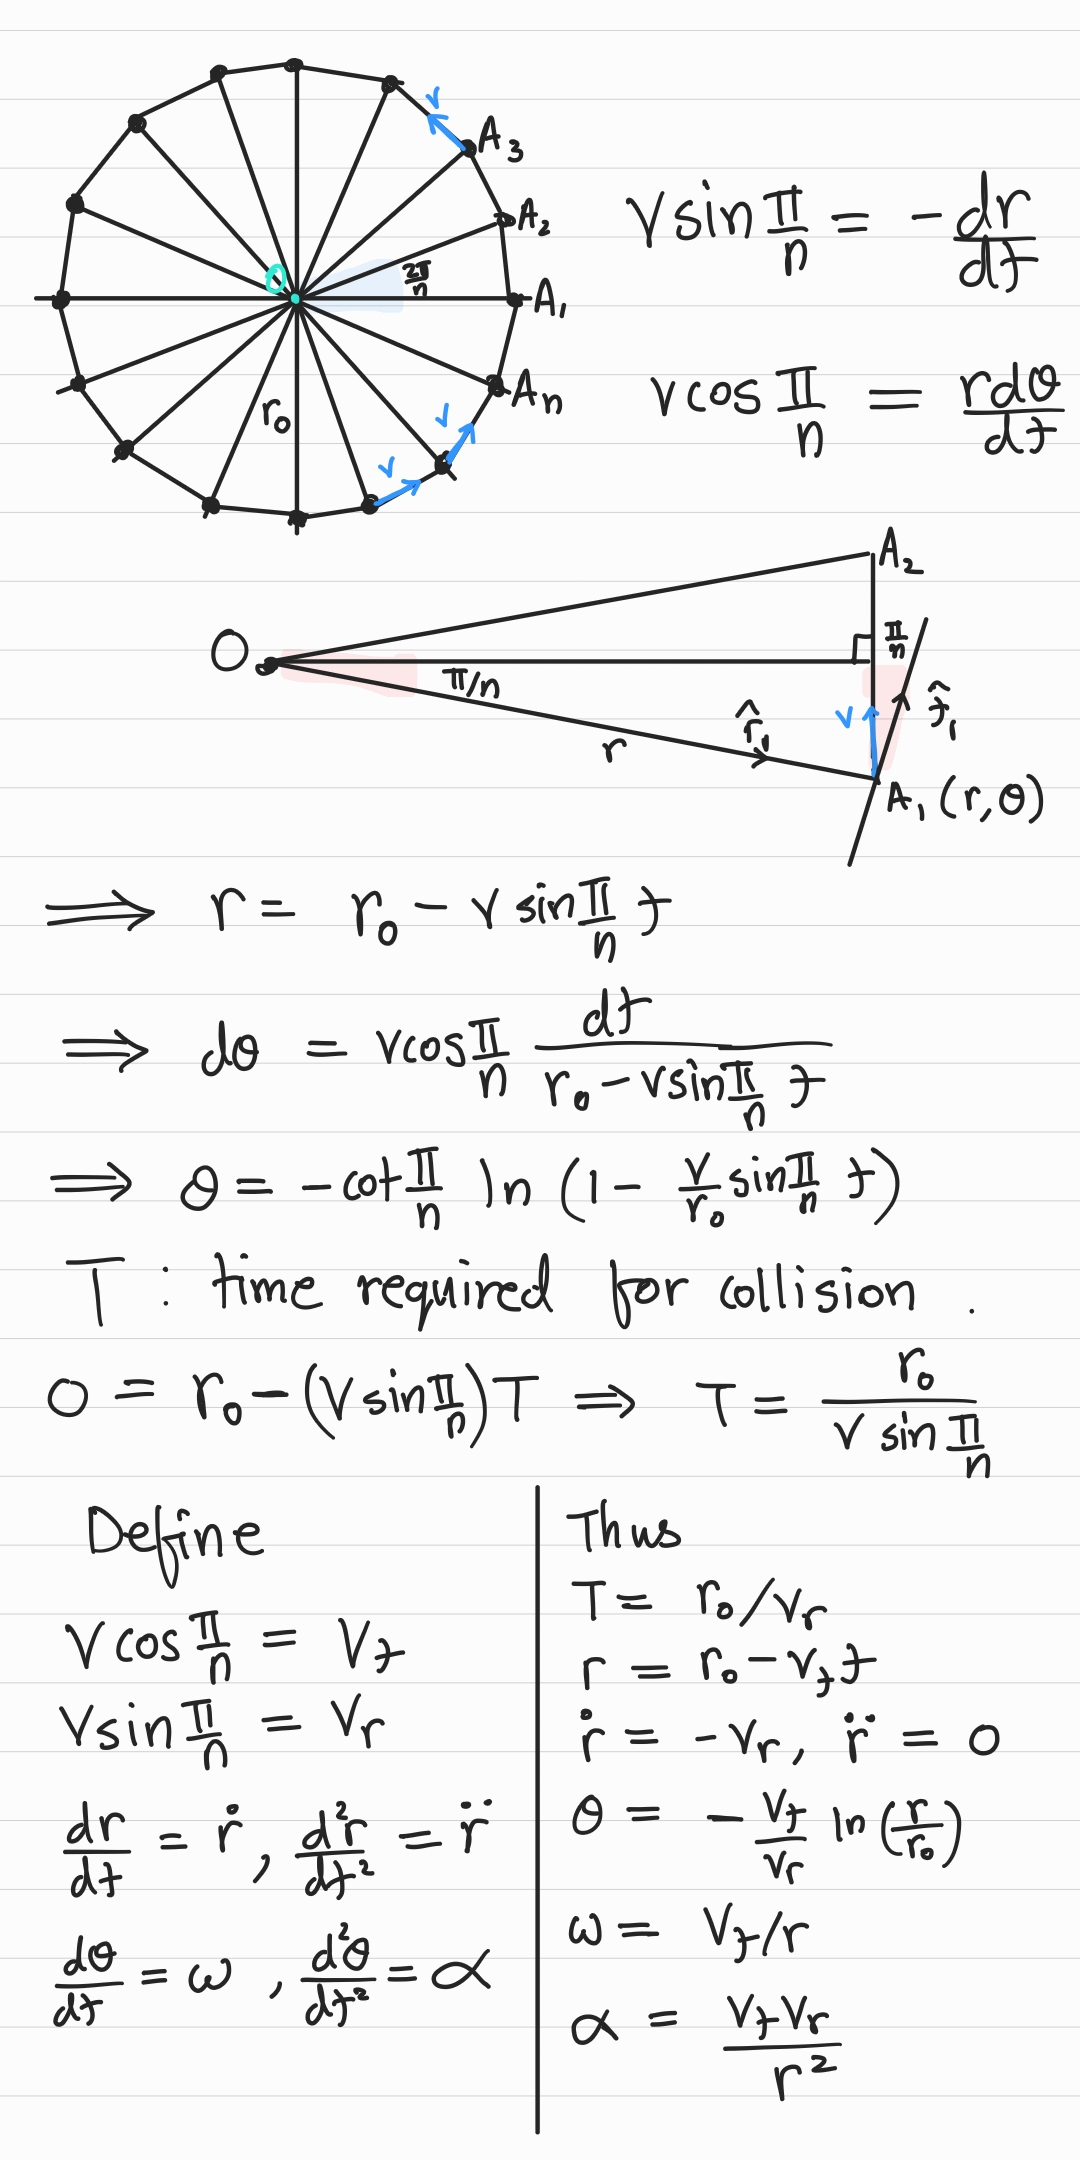 v
A₃
A₂
O
2π/n
A₁
Aₙ
r₀
v
v
v sin π/n = - dr/dt
v cos π/n = rdθ/dt
A₂
O
π/n
π/n
r̂₁
r
v
t̂₁
A₁ (r, θ)
⟹ r = r₀ - v sin π/n t
⟹ dθ = v cos π/n dt/(r₀ - v sin π/n t)
⟹ θ = - cot π/n ln (1 - v/r₀ sin π/n t)
T : time required for collision .
0 = r₀ - (v sin π/n) T ⟹ T = r₀/(v sin π/n)
Define
v cos π/n = vₜ
v sin π/n = vᵣ
dr/dt = ṙ , d²r/dt² = r̈
dθ/dt = ω , d²θ/dt² = α
Thus
T = r₀/vᵣ
r = r₀ - vₜ t
ṙ = - vᵣ, r̈ = 0
θ = - vₜ/vᵣ ln (r/r₀)
ω = vₜ/r
α = vₜ vᵣ/r²